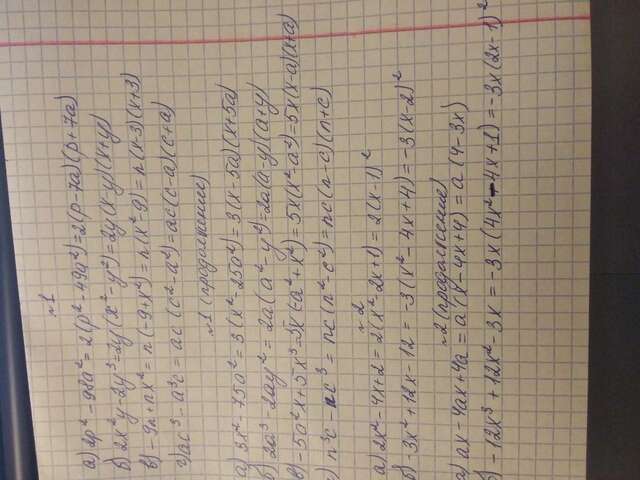 №1
а) 2p² - 98a² = 2(p² - 49a²) = 2(p - 7a)(p + 7a)
б) 2x²y - 2y³ = 2y(x² - y²) = 2y(x - y)(x + y)
в) -9n + nx² = n(-9 + x²) = n(x² - 9) = n(x - 3)(x + 3)
г) ac³ - a³c = ac(c² - a²) = ac(c - a)(c + a)
№1 (продолжение)
а) 3x² - 75a² = 3(x² - 25a²) = 3(x - 5a)(x + 5a)
б) 2a³ - 2ay² = 2a(a² - y²) = 2a(a - y)(a + y)
в) -5a²x + 5x³ = 5x(-a² + x²) = 5x(x² - a²) = 5x(x - a)(x + a)
г) n³c - nc³ = nc(n² - c²) = nc(n - c)(n + c)
№2
а) 2x² - 4x + 2 = 2(x² - 2x + 1) = 2(x - 1)²
б) -3x² + 12x - 12 = -3(x² - 4x + 4) = -3(x - 2)²
№2 (продолжение)
а) ax - 4ax + 4a = a(x - 4x + 4) = a(4 - 3x)
б) -12x³ + 12x² - 3x = -3x(4x² - 4x + 1) = -3x(2x - 1)²